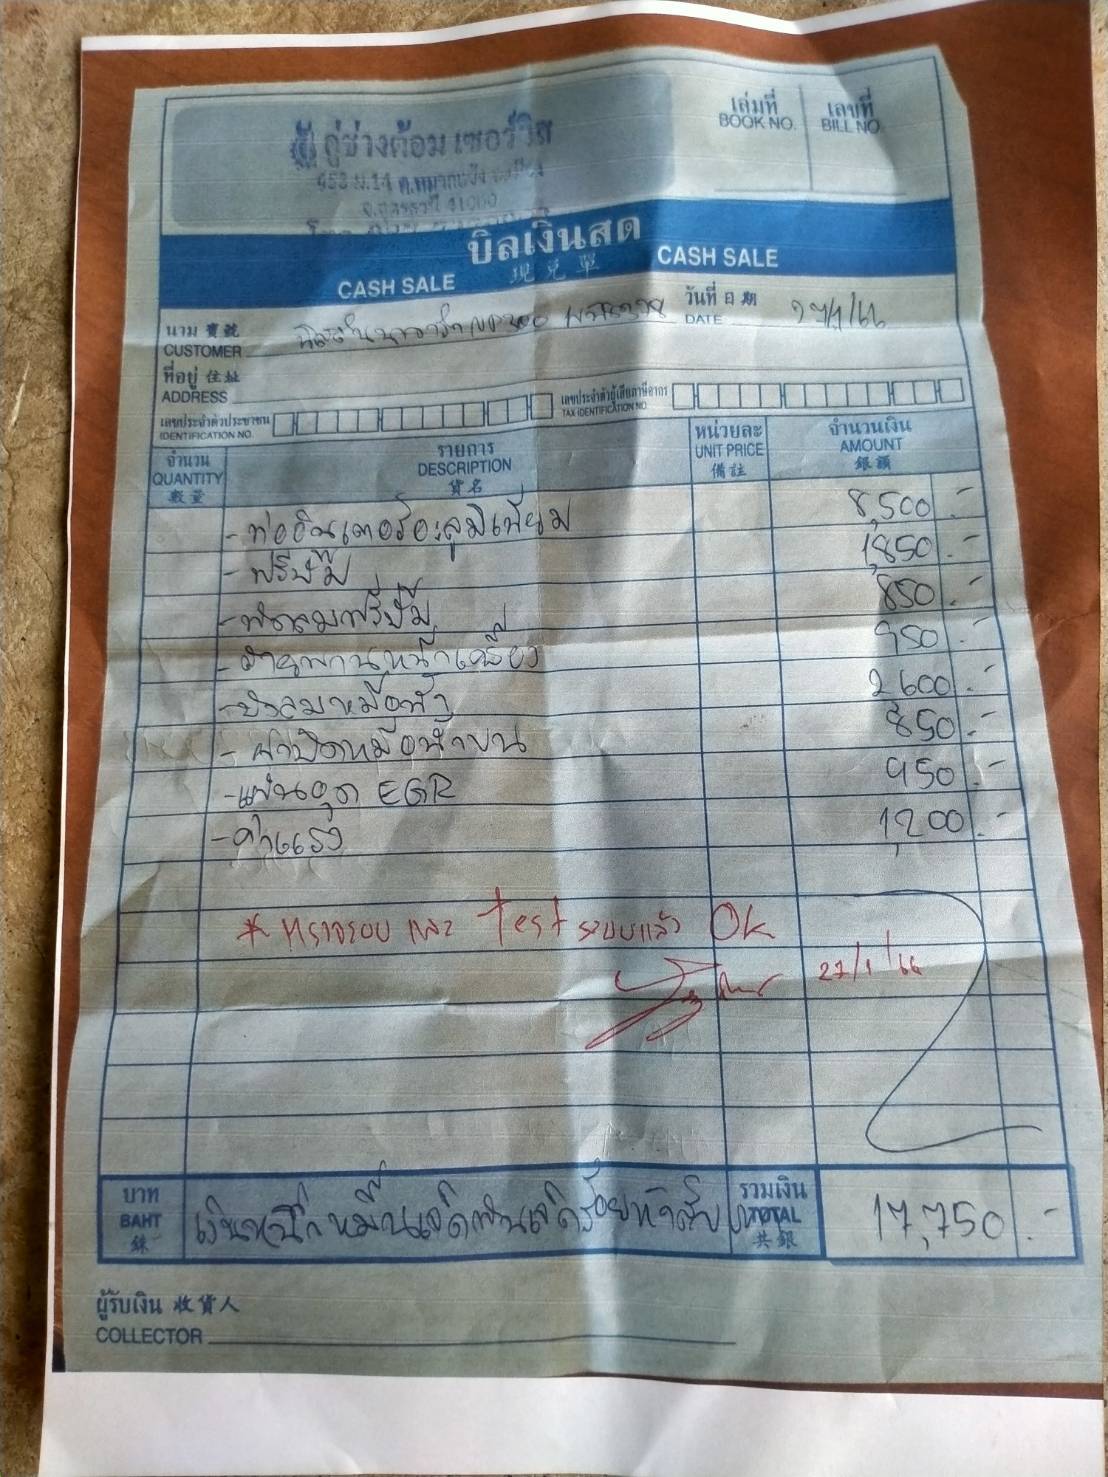 คู่ช่างต้อม เซอร์วิส
ม.14 ต.หมากแข้ง อ.เมือง
จ.อุดรธานี 41000
เล่มที่
BOOK NO.
เลขที่
BILL NO.
บิลเงินสด
CASH SALE 現兌單 CASH SALE
นาม 寶號
CUSTOMER
วันที่ 日期
DATE 27/1/66
ที่อยู่ 住址
ADDRESS
เลขประจำตัวประชาชน
IDENTIFICATION NO.
เลขประจำตัวผู้เสียภาษีอากร
TAX IDENTIFICATION NO.
จำนวน
QUANTITY
數量
รายการ
DESCRIPTION
貨名
หน่วยละ
UNIT PRICE
備註
จำนวนเงิน
AMOUNT
銀額
- ท่ออินเตอร์อะลูมิเนียม 8,500.-
- ฟรีปั๊ม 1,850.-
- พัดลมฟรีปั๊ม 850.-
- สายพานหน้าเครื่อง 950.-
2,600.-
- ฝาปิดหม้อน้ำบน 850.-
- แผ่นอุด EGR 950.-
- ค่าแรง 1,200.-
* ตรวจรอบ และ Test ระบบแล้ว Ok
27/1/66
บาท
BAHT
銖
เงินหนึ่งหมื่นเจ็ดพันเจ็ดร้อยห้าสิบบาท
รวมเงิน
TOTAL
共銀
17,750.-
ผู้รับเงิน 收貨人
COLLECTOR